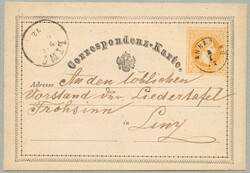 LINZ
72
Correspondenz-Karte.
Adresse An den löblichen
Vorstand der Liedertafel
Frohsinn
in Linz